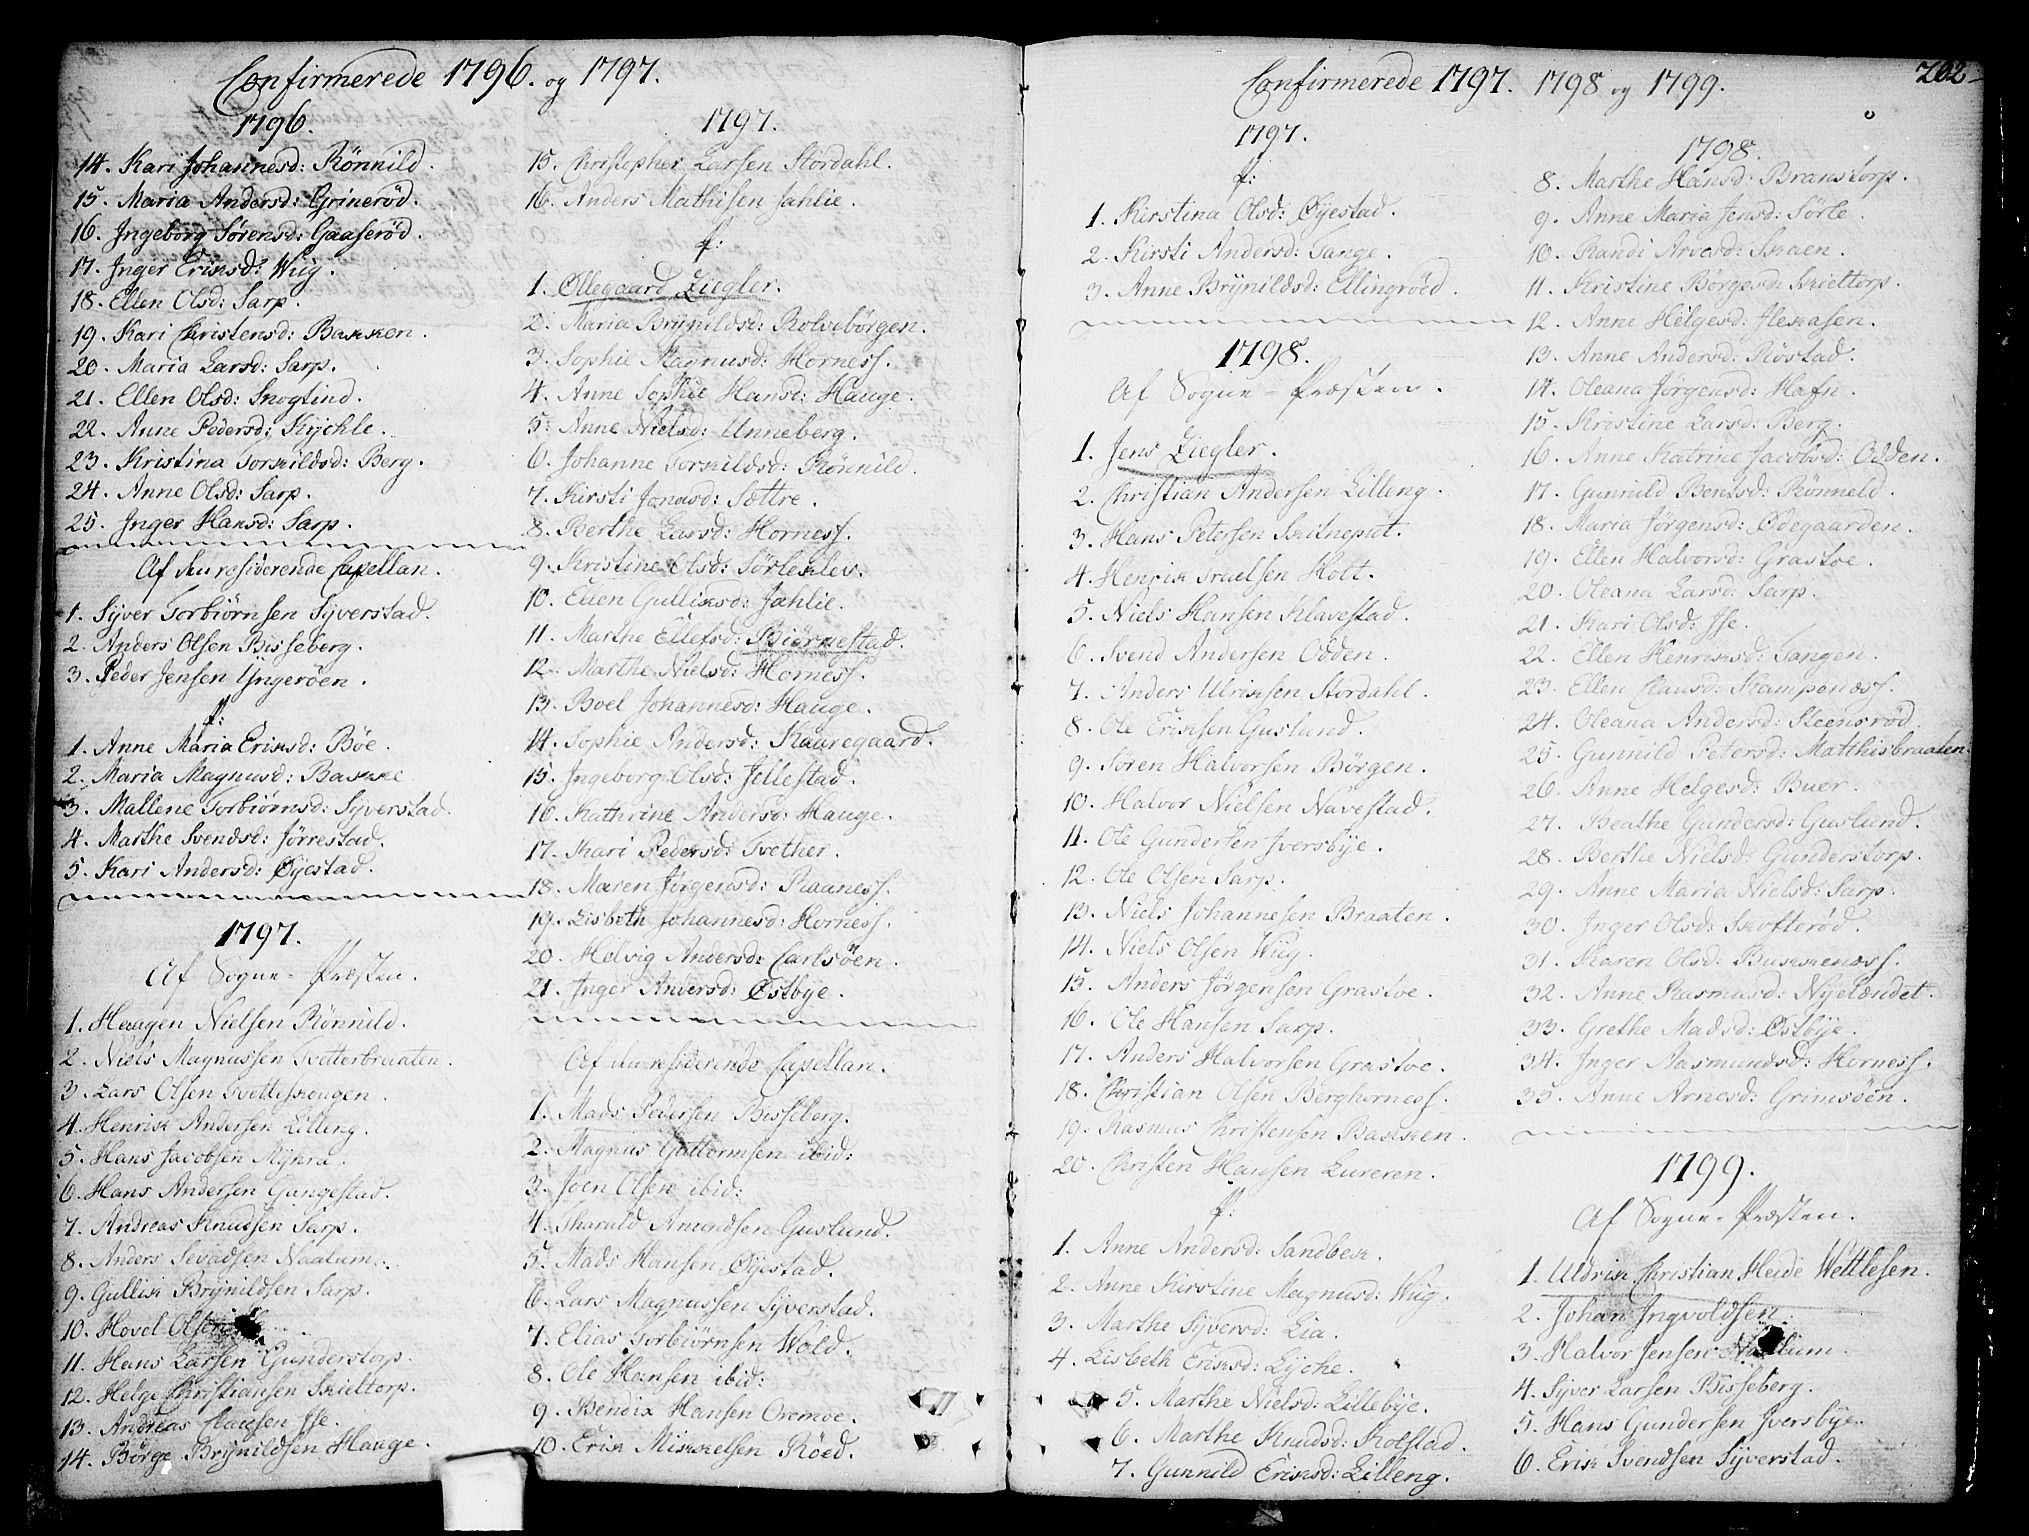 Confirmerede 1796. og 1797.
1796.
14. Kari Johannesd: Rönnild.
15. Maria Andersd: Grineröd.
16. Ingeborg Sörensd: Gaaseröd.
17. Inger Eriksd: Wiig.
18. Ellen Olsd: Sarp.
19. Kari Christensd: Bakken.
20. Maria Larsd: Sarp.
21. Ellen Olsd: Snogtind.
22. Anne Pedersd: Kÿchle.
23. Kristina Torkildsd: Berg.
24. Anne Olsd: Sarp.
25. Inger Hansd: Sarp.
Af den residerende Capellan.
1. Syver Torbiörnsen Syverstad.
2. Anders Olsen Bisseberg.
3. Peder Jensen Ÿngeröen.
f:
1. Anne Maria Eriksd: Böe.
2. Maria Magnusd: Bakke
3. Mallene Torbiörnsd: Syverstad.
4. Marthe Svendsd: Jörrestad.
5. Kari Andersd: Øyestad.
1797.
Af Sogne-Præsten.
1. Haagen Nielsen Rönnild.
2. Niels Magnussen Tvetterbraaten.
3. Lars Olsen Tvetteskougen.
4. Henrik Andersen Lilleng.
5. Hans Jacobsen Myhra.
6. Hans Andersen Gangestad.
7. Andreas Knudsen Sarp.
8. Anders Sevadsen Naalum.
9. Gullik Brynildsen Sarp.
10. Hovel Olsen
11. Hans Larsen Gunderstorp.
12. Helge Christiansen Skieltorp.
13. Andreas Clausen Ise.
14. Börge Brynildsen Hauge.
1797.
15. Christopher Larsen Stordahl.
16. Anders Mathisen Jahlie.
f:
1. Øllegaard Ziegler.
2. Maria Brynildsd: Rolvsbörgen.
3. Sophie Magnusd: Horness.
4. Anne Sophie Hansd: Hauge.
5. Anne Nielsd: Unneberg.
6. Johanne Torkildsd: Rönnild.
7. Kirsti Jonasd: Sættre.
8. Berthe Larsd: Horness.
9. Kristine Olsd: Sörleklev.
10. Ellen Gulliksd: Jahlie.
11. Marthe Ellefsd: Biörnestad.
12. Marthe Nielsd: Horness.
13. Boel Johannesd: Hauge.
14. Sophie Andersd: Kaaregaard.
15. Ingeborg Olsd: Jellestad.
16. Kathrine Andersd: Hauge.
17. Kari Pedersd: Tvether.
18. Maren Jörgensd: Raaness.
19. Lisbeth Johannesd: Horness.
20. Helvig Andersd: Carlsöen.
21. Inger Andersd: Østbye.
Af den residerende Capellan.
1. Mads Pedersen Bisseberg.
2. Magnus Guttormsen ibid:
3. Joen Olsen ibid:
4. Tharald Amundsen Guslund.
5. Mads Hansen Øyestad.
6. Lars Magnussen Syverstad.
7. Elias Torbiörnsen Wold.
8. Ole Hansen ibid:
9. Bendix Hansen Oremoe.
10. Erik Mikkelsen Röed.
Confirmerede 1797. 1798 og 1799.
202
1797.
f:
1. Kirstina Olsd: Øyestad.
2. Kirsti Andersd: Tange.
3. Anne Brynildsd: Ellingröed.
1798.
Af Sogne-Præsten.
1. Jens Ziegler.
2. Christian Andersen Lilleng.
3. Hans Petersen Skitneput.
4. Henrik Truelsen Holt.
5. Niels Hansen Klavestad.
6. Svend Andersen Odden.
7. Anders Ulriksen Stordahl.
8. Ole Eriksen Guslund.
9. Sören Halvorsen Börgen.
10. Halvor Nielsen Navestad.
11. Ole Gundersen Iversbye.
12. Ole Olsen Sarp.
13. Niels Johannesen Braaten.
14. Niels Olsen Wiig.
15. Anders Jörgensen Grastoe.
16. Ole Hansen Sarp.
17. Anders Halvorsen Grastoe.
18. Christian Olsen Berghorness.
19. Rasmus Christensen Bakken.
20. Christen Hansen Lureren.
f:
1. Anne Andersd: Sandbek.
2. Anne Kirstine Magnusd: Wiig.
3. Marthe Syversd: Lia.
4. Lisbeth Eriksd: Lyche.
5. Marthe Nielsd: Lillebye.
6. Marthe Knudsd: Kolstad.
7. Gunnild Eriksd: Lilleng.
1798.
8. Marthe Hansd: Branstorp.
9. Anne Maria Jensd: Sörle.
10. Randi Arvesd: Skaen.
11. Kristine Börgesd: Skieltorp.
12. Anne Helgesd: Fleskasen.
13. Anne Andersd: Röstad.
14. Oleana Jörgensd: Hafn.
15. Kristine Larsd: Berg.
16. Anne Katrine Jacobsd: Odden.
17. Gunnild Bentsd: Rönneld.
18. Maria Jörgensd: Ødegaarden.
19. Ellen Halvorsd: Grastoe.
20. Oleana Larsd: Sarp.
21. Kari Olsd: Ise.
22. Ellen Henriksd: Tangen.
23. Ellen Clausd: Kampenæss.
24. Oleana Andersd: Steensröd.
25. Gunnild Petersd: Matthisbraaten.
26. Anne Helgesd: Buer.
27. Beathe Gundersd: Guslund.
28. Berthe Nielsd: Gunderstorp.
29. Anne Maria Nielsd: Sarp.
30. Inger Olsd: Skofteröd.
31. Karen Olsd: Buskenæss.
32. Anne Rasmusd: Nyelændet.
33. Grethe Madsd: Østbye.
34. Inger Aasmundsd: Horness.
35. Anne Arnesd: Grimsöen.
1799.
Af Sogne-Præsten.
1. Uldrik Christian Heide Wettlesen.
2. Johan Ingvoldsen
3. Halvor Jensen Naalum.
4. Syver Larsen Bÿsseberg.
5. Hans Gundersen Iversbye.
6. Erik Svendsen Syverstad.